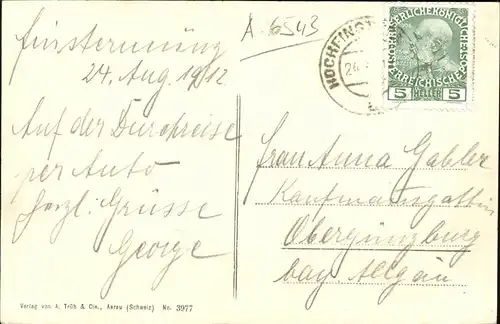 A. 6543
Finstermünz
24. Aug. 1912
Auf der Durchreise
per Auto
herzl. Grüsse
George
HOCHFINST
24
KAISERLICHEKÖNIGLICHE
ÖSTERREICHISCHE POST
5 HELLER 5
Frau Anna Gabler
Kaufmannsgattin
Obergünzburg
bay. Allgäu
Verlag von A. Trüb & Cie., Aarau (Schweiz) No. 3977